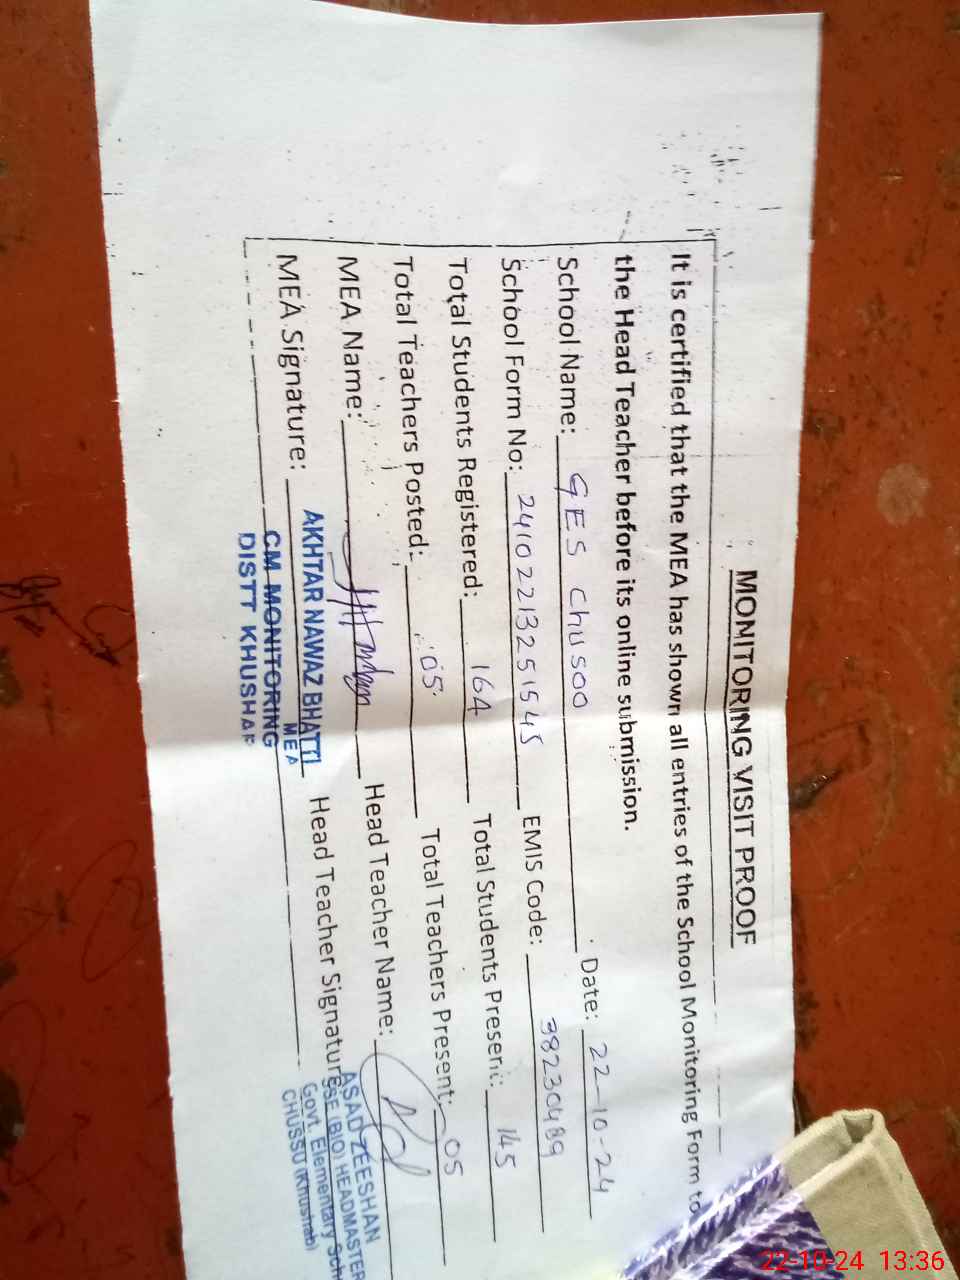 MONITORING VISIT PROOF
It is certified that the MEA has shown all entries of the School Monitoring Form to
the Head Teacher before its online submission.
School Name: GES Chusoo Date: 22-10-24
School Form No: 2410221325 1545 EMIS Code: 38230489
Total Students Registered: 164 Total Students Present: 145
Total Teachers Posted: 05 Total Teachers Present: 05
MEA Name: Head Teacher Name:
MEA Signature: Head Teacher Signature:
AKHTAR NAWAZ BHATTI
MEA
CM MONITORING
DISTT KHUSHAB
ASAD ZEESHAN
SSE (BIO) HEADMASTER
Govt. Elementary Sch
CHUSSU (Khushab)
22-10-24 13:36